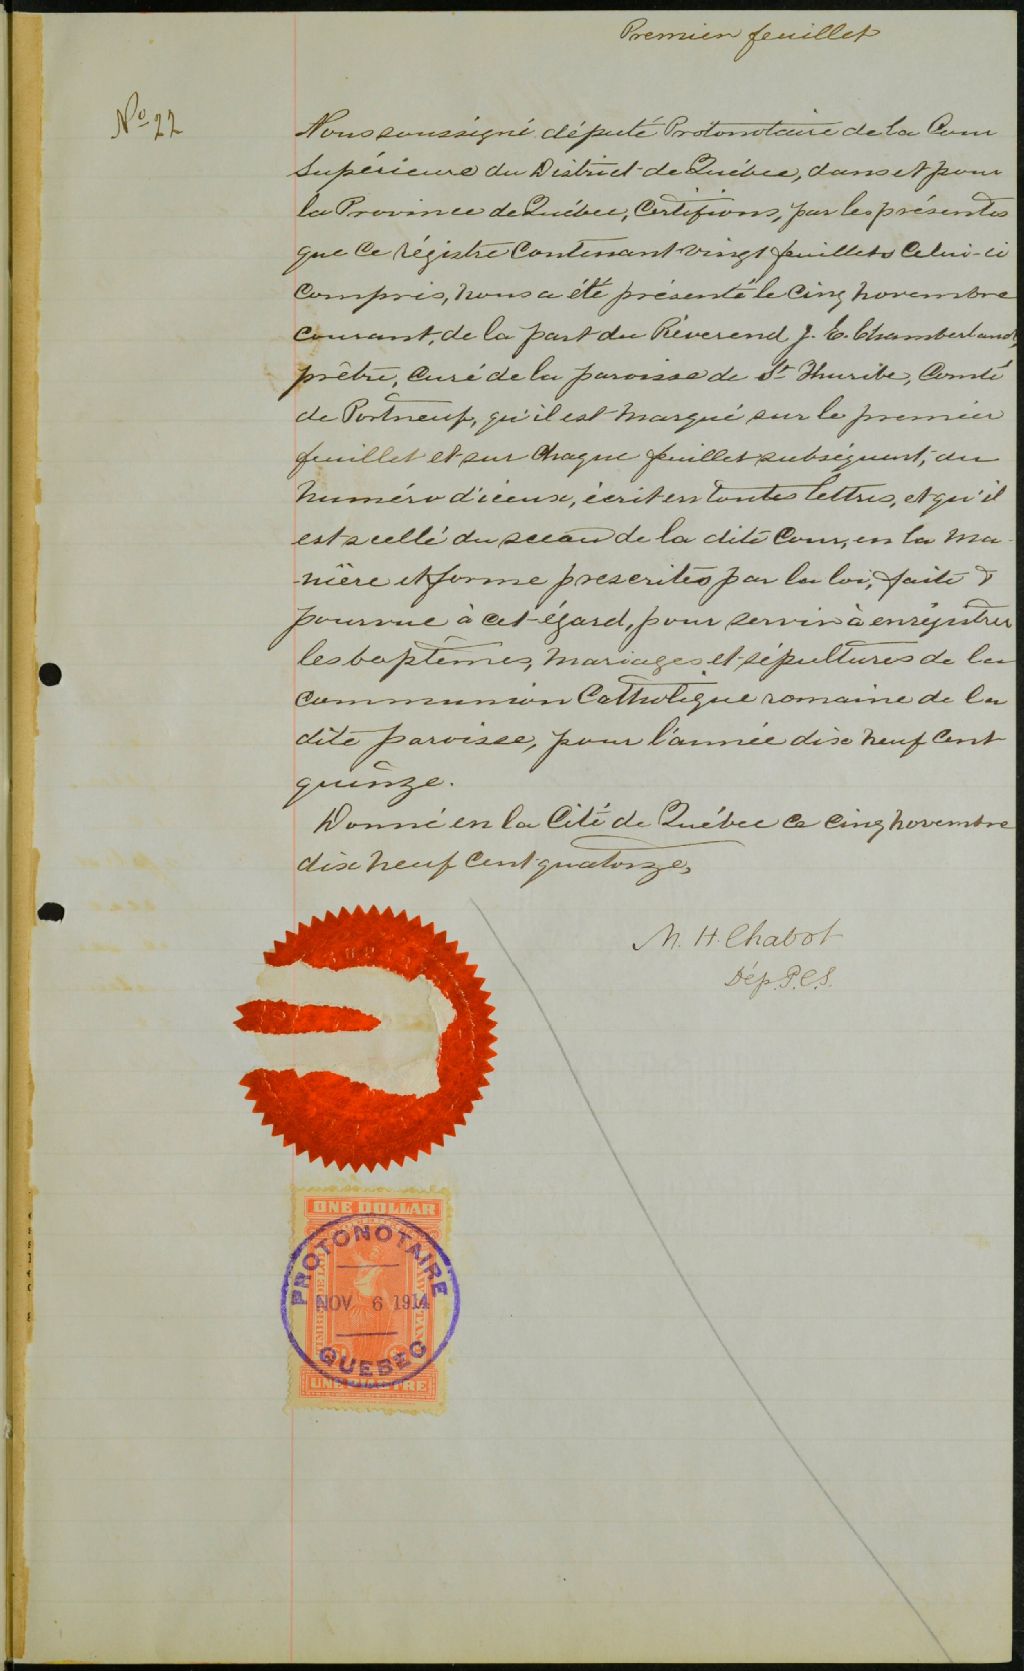 Premier feuillet
No 22
Nous soussigné député Protonotaire de la Cour
Supérieure du District de Québec, dans et pour
la Province de Québec, Certifions, par les présentes
que ce régistre contenant vingt feuillets celui-ci
compris, nous a été présenté le cinq novembre
courant, de la part du Réverend J. E. Chamberland,
prêtre, curé de la paroisse de St Thuribe, Comté
de Portneuf, qu'il est marqué sur le premier
feuillet et sur chaque feuillet subséquent, du
numéro d'iceux, écrit en toutes lettres, et qu'il
est scellé du sceau de la dite Cour, en la ma-
-nière et forme prescrites par la loi, faite &
pourvue à cet égard, pour servir à enrégistrer
les baptêmes, mariages et sépultures de la
communion Catholique romaine de la
dite paroisse, pour l'année dix neuf cent
quinze.
Donné en la Cité de Québec ce cinq novembre
dix neuf cent quatorze,
M. H. Chabot
Dép. P.C.S.
ONE DOLLAR
PROTONOTAIRE
NOV 6 1914
QUEBEC
UNE PIASTRE